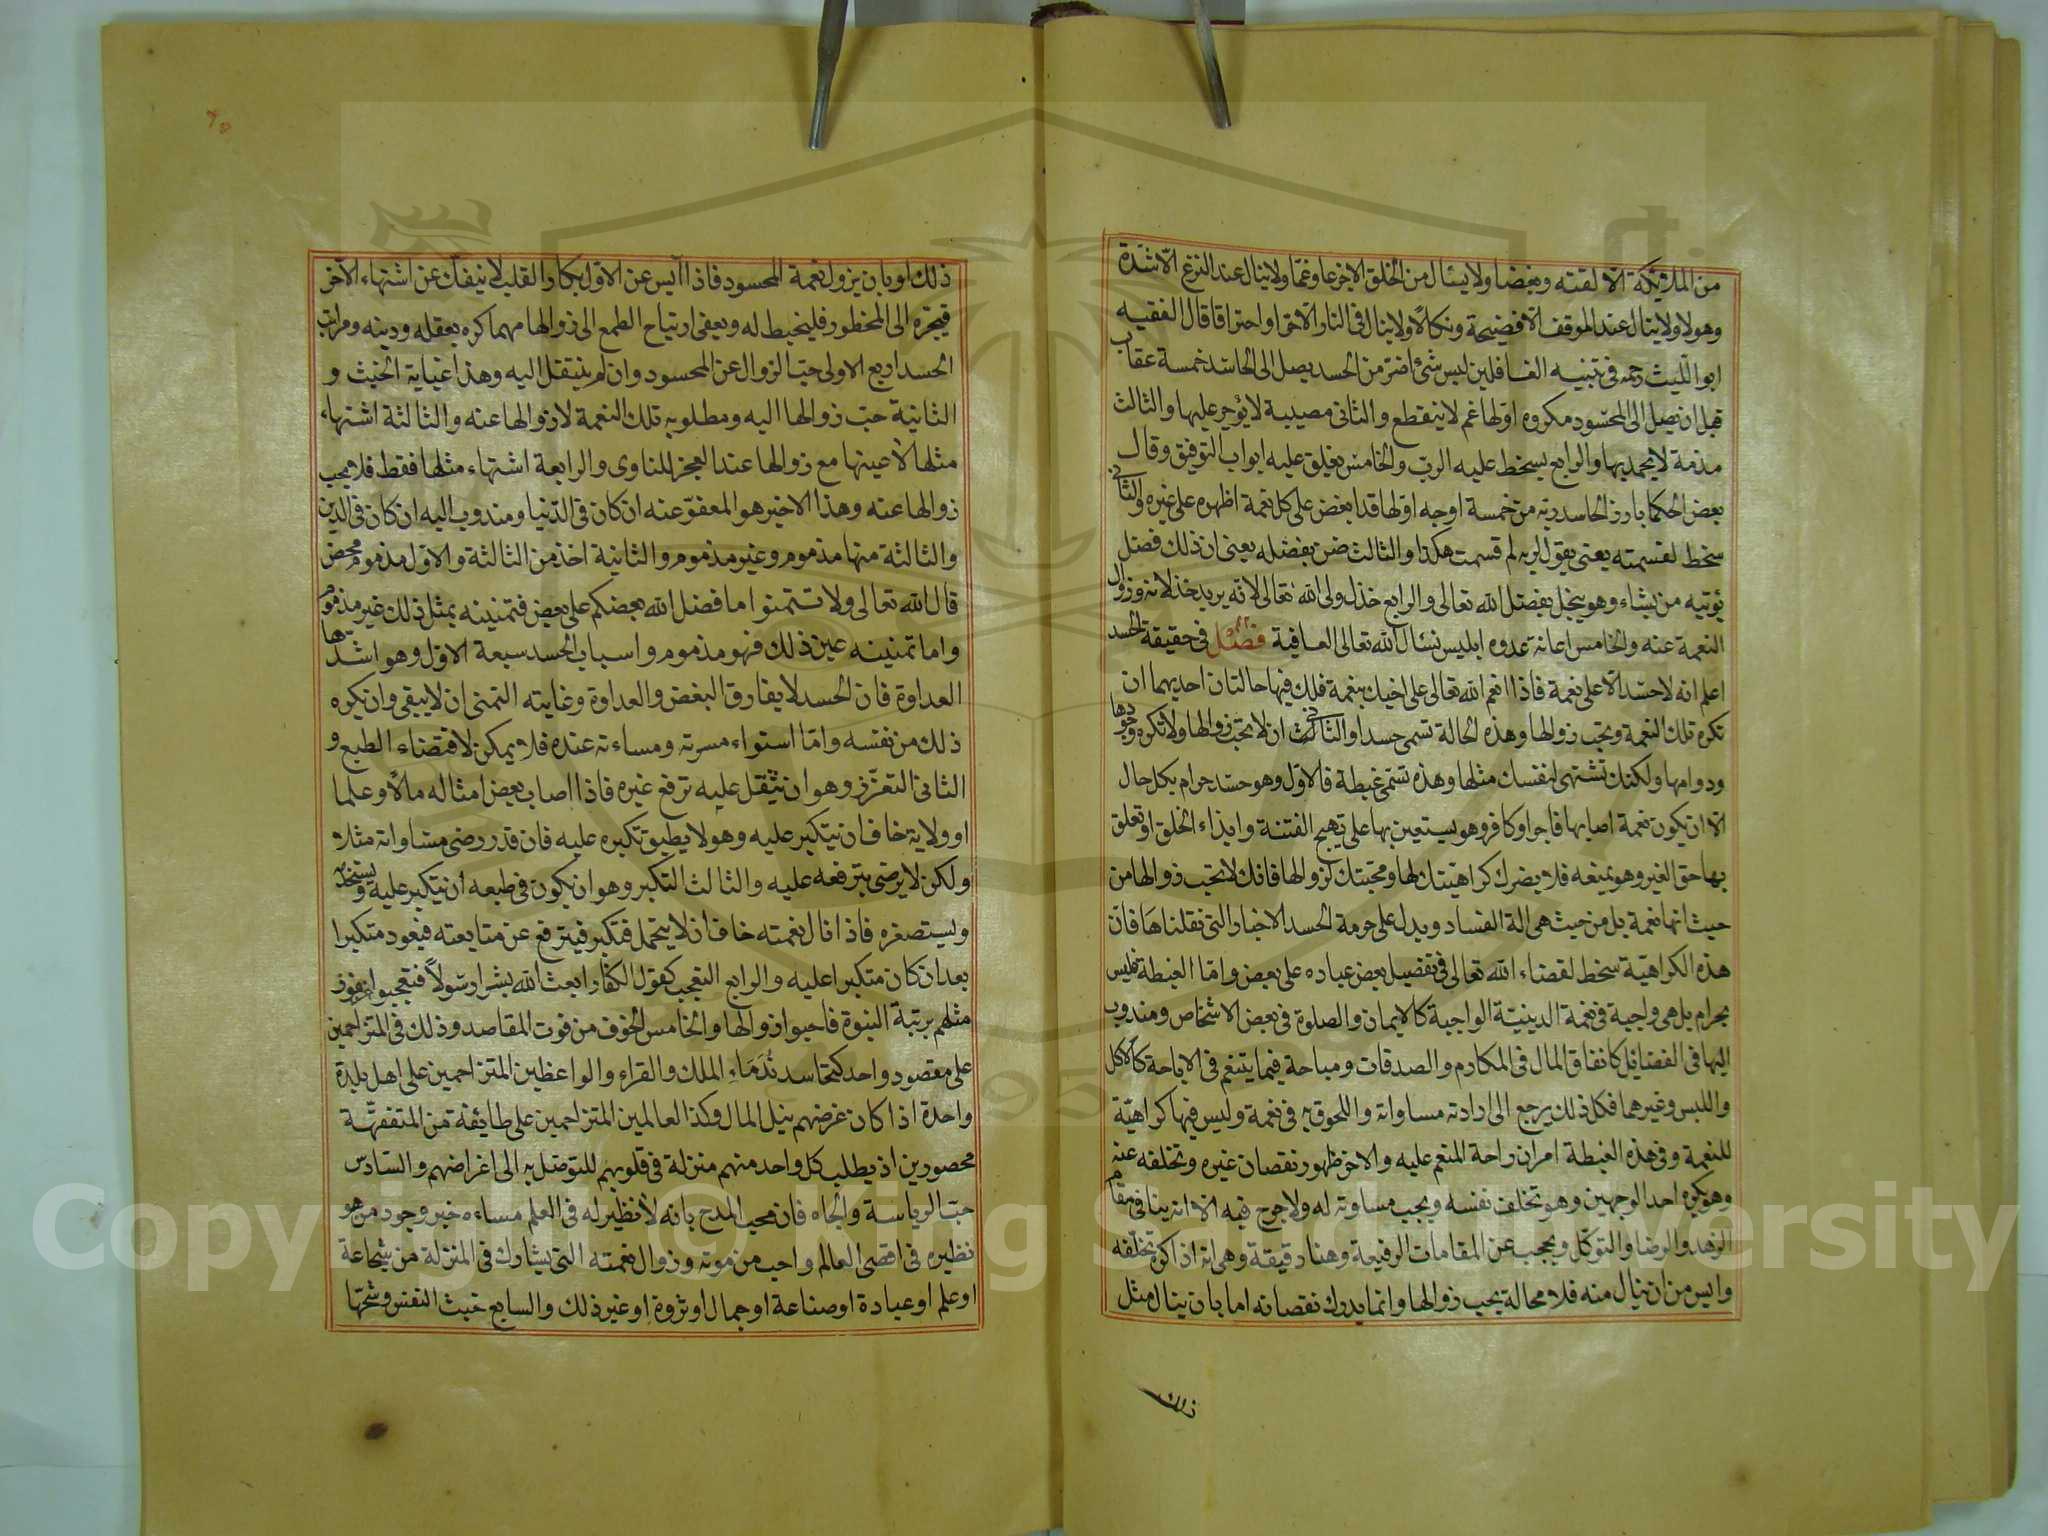 من الملائكة الا لعنته وبغضا ولا ينال من الخلق الا جزعا وغما ولا ينال عند النزع الا شدة
وهولا ولا ينال عند الموقف الا فضيحة ونكالا ولا ينال في النار الا حرا واحتراقا قال الفقيه
ابو الليث رحمه في تنبيه الغافلين ليس شئ اضر من الحسد يصل الى الحاسد خمسة عقاب
قبل ان يصل الى المحسود مكروه اولها غم لا ينقطع والثاني مصيبة لا يؤجر عليها والثالث
مذمة لا يحمد بها والرابع يسخط عليه الرب والخامس يغلق عليه ابواب التوفيق وقال
بعض الحكما بارز الحاسد ربه من خمسة اوجه اولها قد ابغض على كل نعمة اظهره على غيره والثاني
سخط لقسمته يعني يقول لربه لم قسمت هكذا والثالث ضن بفضله يعني ان ذلك فضل
يؤتيه من يشاء وهو يبخل بفضل الله تعالى والرابع خذل ولى الله تعالى لانه يريد خذلانه وزوال
النعمة عنه والخامس اعانة عدوه ابليس نسأل الله تعالى العافية فصل في حقيقة الحسد
اعلم انه لا حسد الا على نعمة فاذا انعم الله تعالى على اخيك بنعمة فلك فيها حالتان احديهما ان
تكره تلك النعمة وتحب زوالها وهذه الحالة تسمى حسدا والثانى ان لا تحب زوالها ولا تكره وجودها
ودوامها ولكنك تشتهي لنفسك مثلها وهذه تسمى غبطة فالاول وهو حسد حرام بكل حال
الا ان يكون نعمة اصابها فاجر او كافر وهو يستعين بها على تهيج الفتنة وايذاء الخلق او تعلق
بها حق الغير وهو يمنعه فلا يضرك كراهيتك لها ومحبتك لزوالها فانك لا تحب زوالها من
حيث انها نعمة بل من حيث هى الة الفساد ويدل على حرمة الحسد الاخبار التى نقلناها فان
هذه الكراهية سخط لقضاء الله تعالى في تفضيل بعض عباده على بعض واما الغبطة فليس
بحرام بل هى واجبة في نعمة الدينية الواجبة كالايمان والصلوة في بعض الاشخاص ومندوب
اليها في الفضايل كانفاق المال في المكارم والصدقات ومباحة فيما يتنعم في الاباحة كالاكل
واللبس وغيرهما فكل ذلك يرجع الى ارادته مساواته واللحوق به في نعمة وليس فيها كراهية
للنعمة وفي هذه الغبطة امران راحة المنعم عليه والاخر ظهور نقصان غيره وتخلفه عنه
وهو يكره احد الوجهين وهو تخلف نفسه ويحب مساوته له ولا حرج فيه الا انه ينافى مقام
الزهد والرضا والتوكل ويحجب عن المقامات الرفيعة وهنا دقيقة وهى انه اذا كره تخلفه
وايس من ان ينال منه فلا محالة يحب زوالها وانما يدرك نقصانه اما بان ينال مثل
ذلك
ذلك او بان يزول نعمة المحسود فاذا آيس عن الاول يكاد القلب لا ينفك عن اشتهاء الآخر
فيجره الى المحظور فليحتط له ويعفى ارتياح الطمع الى زوالها مهما كره بعقله ودينه ومراتب
الحسد اربع الاولى حب الزوال عن المحسود وان لم ينتقل اليه وهذا غباية الخبث و
الثانية حب زوالها اليه ومطلوبه تلك النعمة لا زوالها عنه والثالثة اشتهاء
مثلها لا عينها مع زوالها عند العجز للمناوى والرابعة اشتهاء مثلها فقط فلا يحب
زوالها عنه وهذا الاخير هو المعفو عنه ان كان في الدنيا ومندوب اليه ان كان في الدين
والثالثة منها مذموم وغير مذموم والثانية اخذ من الثالثة والاول مذموم محض
قال الله تعالى ولا تتمنوا ما فضل الله بعضكم على بعض فتمنينه بمثل ذلك غير مذموم
واما تمنينه عين ذلك فهو مذموم واسباب الحسد سبعة الاول وهو اشدها
العداوة فان الحسد لا يفارق البغض والعداوة وغايته التمنى ان لا يبقى وان يكره
ذلك من نفسه واما استواء مسرته ومساءته عنده فلا يمكن لاقتضاء الطبع و
الثانى التعزز وهو ان يثقل عليه ترفع غيره فاذا اصاب بعض امثاله مالا وعلما
او ولاية خاف ان يتكبر عليه وهو لا يطيق تكبره عليه فان قدر رضى مساواته مثلا
ولكن لا يرضى بترفعه عليه والثالث التكبر وهو ان يكون في طبعه ان يتكبر عليه ويستخدم
ويستصغره فاذا نال نعمته خاف ان لا يتحمل فتكبر فيترفع عن متابعته فيعود متكبرا
بعد ان كان متكبرا عليه والرابع التعجب كقول الكفار ابعث الله بشرا رسولا فتعجبوا بفوز
مثلهم برتبة النبوة فاحبوا زوالها والخامس الخوف من فوت المقاصد وذلك في المتزاحمين
على مقصود واحد كتحاسد ندماء الملك والقراء والواعظين المتزاحمين على اهل بلدة
واحدة اذا كان غرضهم نيل المال وكذا العالمين المتزاحمين على طائفة من المتفقهة
محصورين اذ يطلب كل واحد منهم منزلة في قلوبهم للتوصل به الى اغراضهم والسادس
حب الرياسة والجاه فان محب المدح بانه لا نظير له في العلم مساءه خبر وجود من هو
نظيره في اقصى العالم واحب من موته وزوال نعمته التى يشارك في المنزلة من شجاعة
او علم او عبادة او صناعة او جمال او ثروة او غير ذلك والسابع خبث النفس وشحها
Copyright © King Saud University